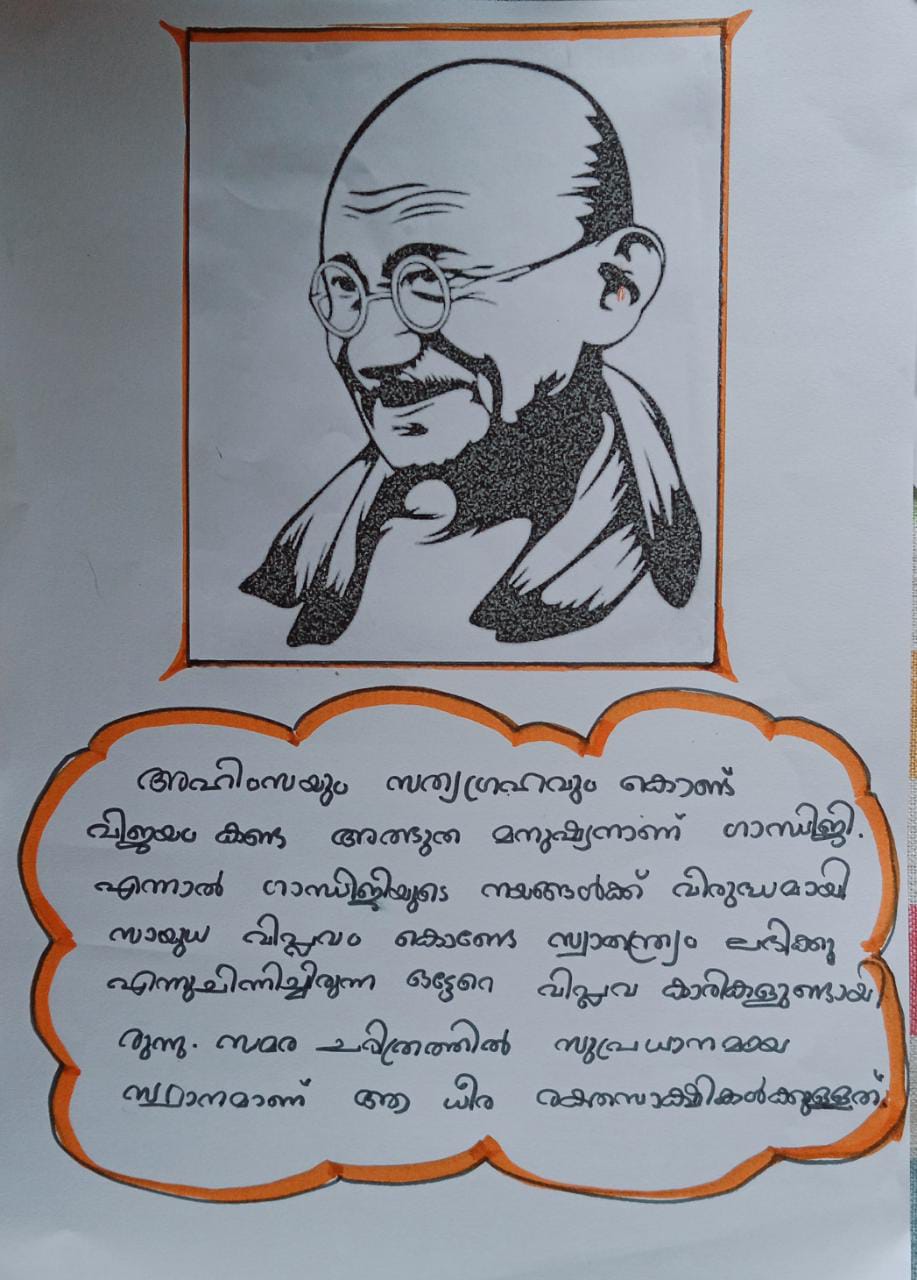 അഹിംസയും സത്യഗ്രഹവും കൊണ്ട്
വിജയം കണ്ട അത്ഭുത മനുഷ്യനാണ് ഗാന്ധിജി.
എന്നാൽ ഗാന്ധിജിയുടെ നയങ്ങൾക്ക് വിരുദ്ധമായി
സായുധ വിപ്ലവം കൊണ്ടേ സ്വാതന്ത്ര്യം ലഭിക്കൂ
എന്നുചിന്തിച്ചിരുന്ന ഒട്ടേറെ വിപ്ലവ കാരികളുണ്ടായി
രുന്നു. സമര ചരിത്രത്തിൽ സുപ്രധാനമായ
സ്ഥാനമാണ് ആ ധീര രക്തസാക്ഷികൾക്കുള്ളത്.